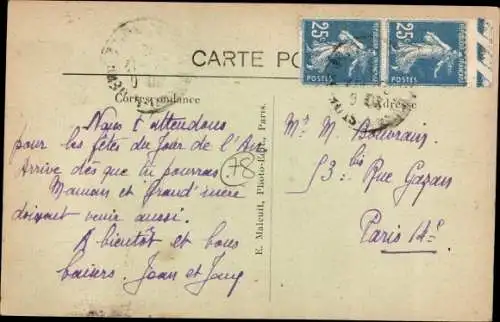 CARTE PO
Correspondance
Adresse
25c
25c
POSTES
POSTES
Nous t'attendons
pour les fêtes du Jour de l'An.
Arrive dès que tu pourras.
Maman et Grand'mère
doivent venir aussi.
A bientôt et bons
baisers. Jean et
78
E. Malcuit, Photo-Edit., Paris.
Mr M. Bouvrain
53 bis Rue Gazan
Paris 14e